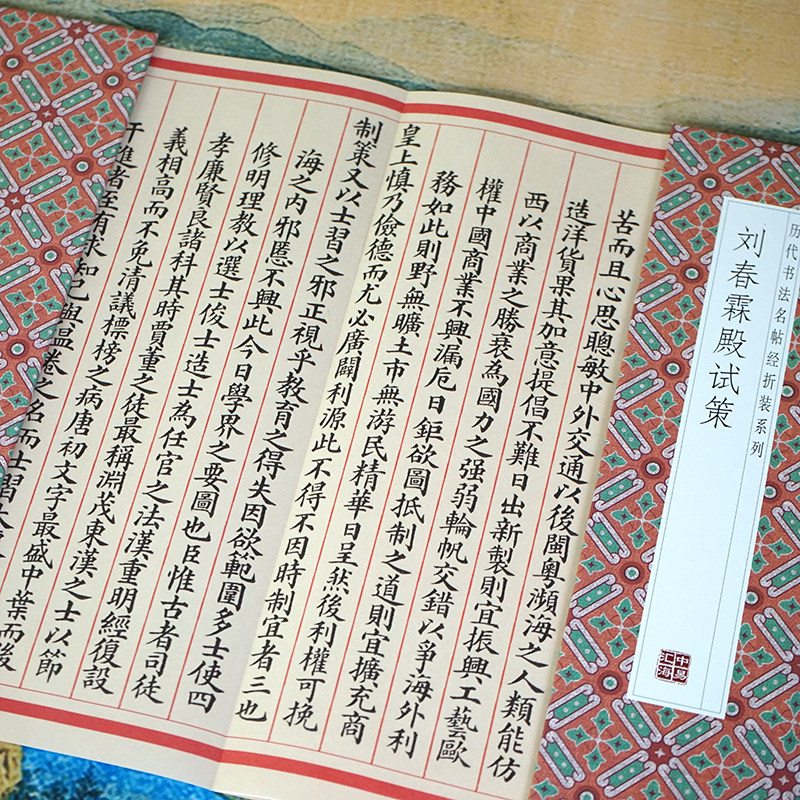 历代书法名帖经折装系列
刘春霖殿试策
苦而且心思聰敏中外交通以後閩粤瀕海之人類能仿
造洋貨果其加意提倡不難日出新製則宜振興工藝歐
西以商業之勝衰為國力之强弱輪帆交錯以爭海外利
權中國商業不興漏卮日鉅欲圖抵制之道則宜擴充商
務如此則野無曠土市無游民精華日呈然後利權可挽
皇上慎乃儉德而尤必廣闢利源此不得不因時制宜者三也
制策又以士習之邪正視乎教育之得失因欲範圍多士使四
海之内邪慝不興此今日學界之要圖也臣惟古者司徒
修明理教以選士俊士造士為任官之法漢重明經復設
孝廉賢良諸科其時賈董之徒最稱淵茂東漢之士以節
義相高而不免清議標榜之病唐初文字最盛中葉而後
干進者至有求知己與温卷之名而士習大